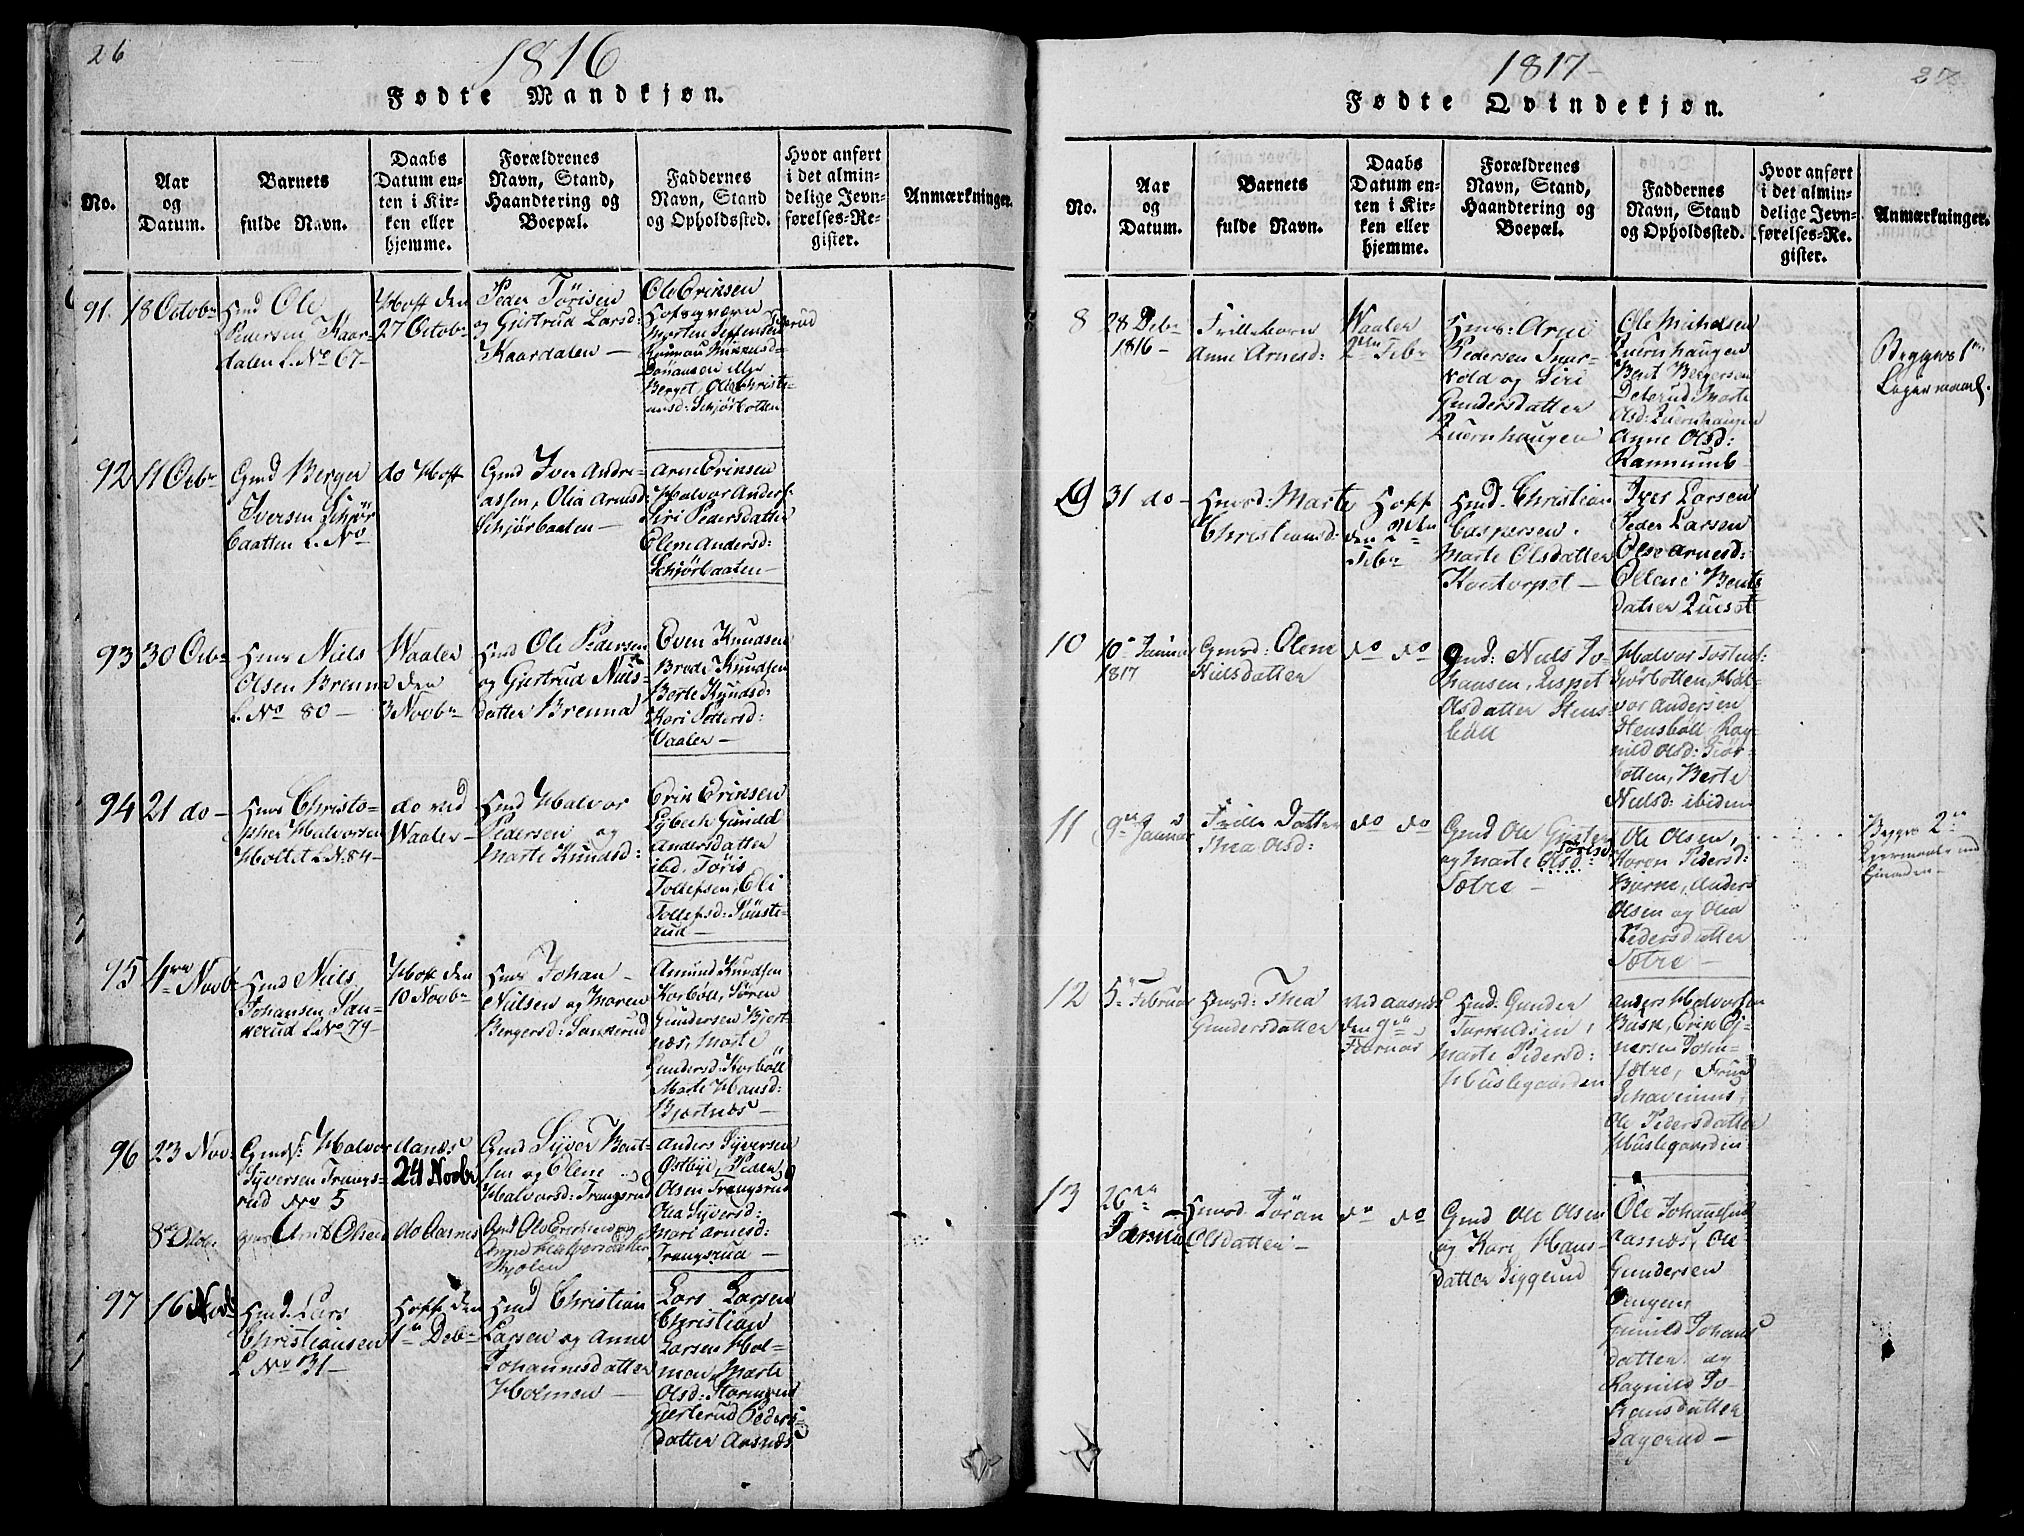 26
1816
Fødte Mandkjøn.
No.
Aar
og
Datum.
Barnets
fulde Navn.
Daabs
Datum en-
ten i Kir-
ken eller
hjemme.
Forældrenes
Navn, Stand,
Haandtering og
Boepæl.
Faddernes
Navn, Stand
og Opholdssted.
Hvor anført
i det almin-
delige Jevn-
førelses-Re-
gister.
Anmærkninger.
91.
18 Octobr
Hmd Ole
Pedersen Kaar-
dalen L. No 67-
Hoff den
27 Octobr
Peder Törisen
og Giertrud Larsd:
Kaardalen —
Ole Erinsen
92
11 Octbr
Gmd Berger
Iversen Schjör-
baatten L. No
do Hoff
Gmd Iver Andre-
assen, Olia Arnesd:
Schjørbaaten —
Arne Erinsen
Halvor Anders:
Siri Pedersdatter
Elene Andersd:
Schjørbaaten —
93
30 Octbr
Hmd Niels
Olsen Brenna
L. No 80 —
Waaler
den
3 Novbr
Hmd Ole Pedersen
og Giertrud Niels-
datter Brenna
Even Knudsen
Brede Knudsen
Berte Knudsd:
Kari Pettersd:
Vaaler —
94
21 do —
Hmd Christo-
pher Halvorsen
Holtet L. No 84 —
do ved
Waaler —
Hmd Halvor
Pedersen og
Marte Knudsd:
Erin Erinsen
Gunild
Andersdatter
ibd. Töris
Tollefsen, Eli
Tollefsd: Sönste-
rud —
95
4re Novb
Hmd Niels
Johansen San-
derud L. No 79 —
Hoff den
10 Novbr
Hmd Johan
Nielsen og Maren
Bergersd: Sanderud
Amund Knudsen
Korböll, Sören
Gundersen Bjert-
næs, Marte
Gundersd: Korböll
Marte Hansd:
Bjertnæs —
96
23 Nov:
Gmds: Halvor
Syversen Trangs-
rud No 5
Aanæs
24 Novbr
Gmd Syver Bent-
sen og Elene
Halvorsd: Trangsrud
Anders Syversen
Østbye, Peder
Olsen Trangsrud
Olea Syversd:
Mari Arnesd:
Trangsrud —
8 Octobr.
Olsen
do Aasnes
97
16 Novb
Hmd. Lars
Christiansen
L. No 31 —
Hoff den
1n Debr
Hmd Christian
Larsen og Anne
Johannesdatter
Holmen —
Lars Larsen
Christian
Larsen Hol-
men, Marte
Olsd:
Gierterud Peders-
datter Aasnæs
1817-
27.
Fødte Qvindekjøn.
No.
Aar
og
Datum.
Barnets
fulde Navn.
Daabs
Datum en-
ten i Kir-
ken eller
hjemme.
Forældrenes
Navn, Stand,
Haandtering og
Boepæl.
Faddernes
Navn, Stand
og Opholdssted.
Hvor anført
i det almin-
delige Jevn-
førelses-Re-
gister.
Anmærkninger.
8
28 Debr
1816 —
Frillebarn
Anne Arnesd:
Waaler
2den Febr
Hmd: Arne
Pedersen Snar-
vold og Siri
Gundersdatter
Quernhaugen
Ole Michelsen
Quernhaugen
Bent Bergersen
Deterud, Marte
Olsd: Quernhaugen
Anne Olsd:
Begges 1ste
Leyermaal.
9
31 do —
Hmds: Marte
Christiansd:
Hoff
den 2den
Febr
Hmd. Christian
Caspersen,
Marte Olsdatter
Kaatorpet —
Iver Larsen
Peder Larsen
Olse Arnesd:
Ollene Bents-
datter Quiset
10
10n Januar
1817
Gmsd: Olene
Nielsdatter
do do
Gmd: Niels Jo-
hansen, Lispet
Olsdatter Stens-
böll
Halvor Tostens:
Hal-
vor Andersen
Stensböll, Rag-
nild Olsd:
Berte
Nielsd: ibidem
11
9n Januar
Frille Datter
Thea Olsd:
do do
Gmd Ole
og Marte Olsd:
Sætre —
Ole Olsen,
Karen Pedersd:
Anders
Olsen og Olea
Pedersdatter
Sætre —
Begges 2n
12
5n Februar
Hmsd: Thea
Gundersdatter
ved Aasnæs
den 9n
Februar
Hmd: Gunder
Tarkeldsen,
Marte Pedersd:
Huslegaarden
Anders Halvorsen
Schavenius,
Ole Pedersdatter
Huslegaarden
13
26n
Januar
Hmsd: Töran
Olsdatter —
do do
Gmd Ole Olsen
og Kari Hans-
datter Siggerud
Ole Johannesen
Aasnæs, Ole
Gundersen
Gunild Johans
datter og
Ragnild Jo-
hansdatter